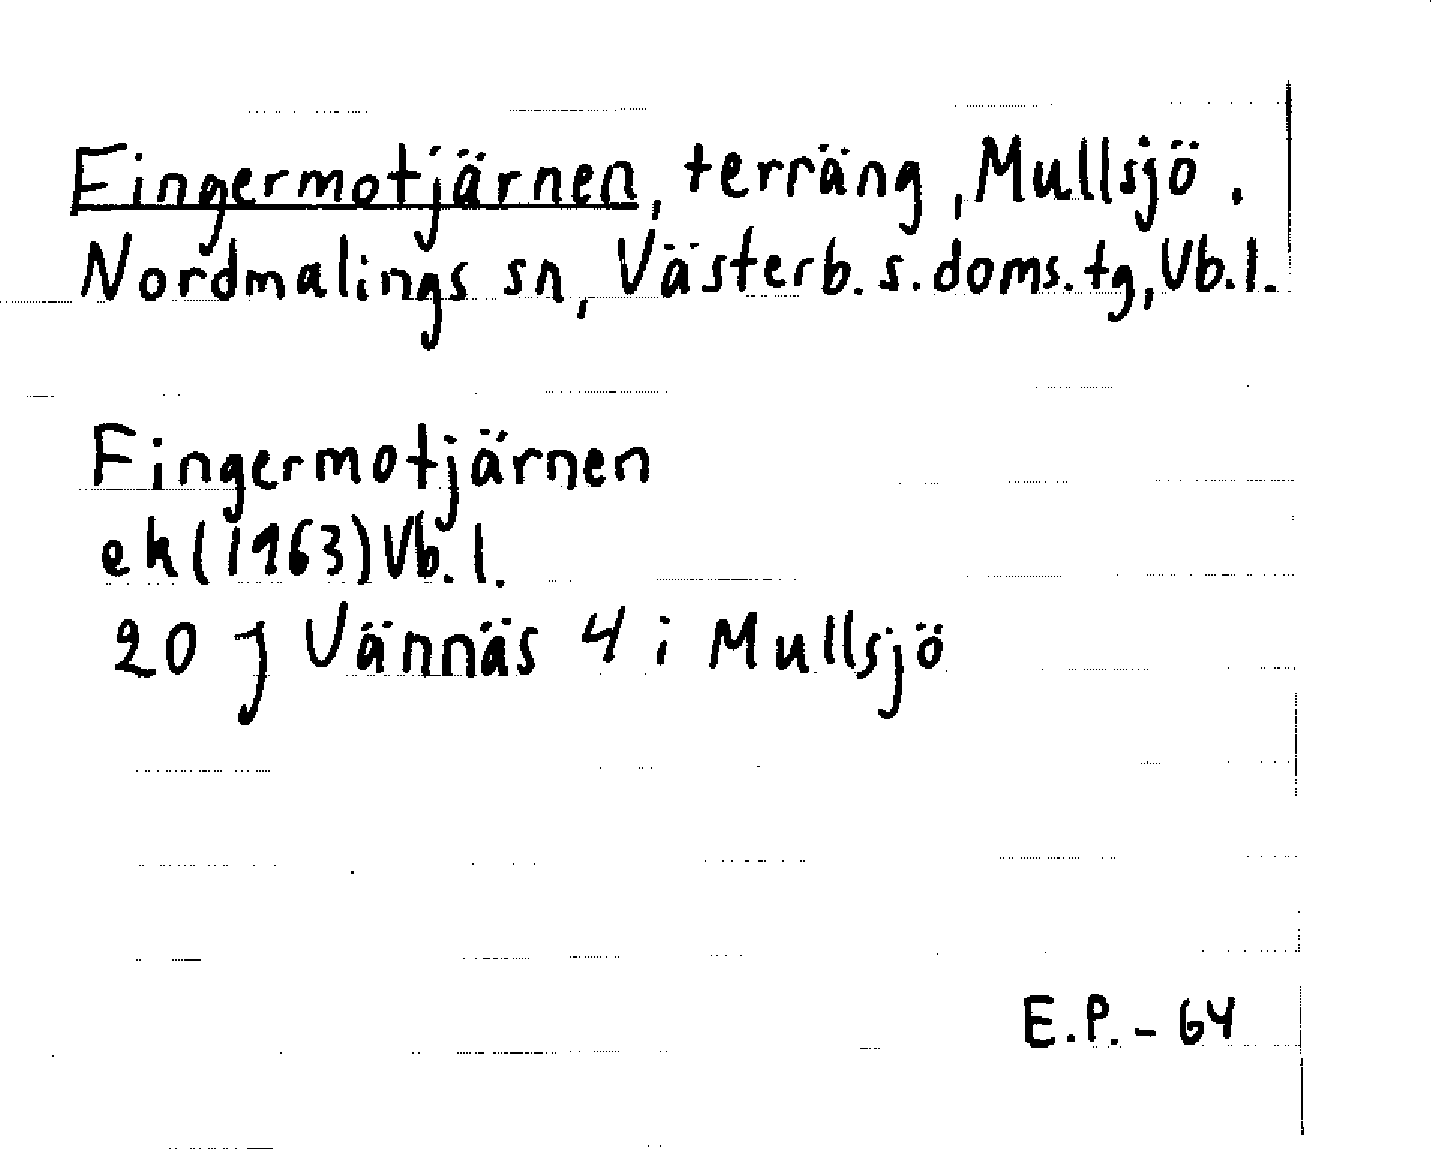 Fingermotjärnen, terräng, Mullsjö.
Nordmalings sn, Västerb. s. doms. tg, Vb. l.
Fingermotjärnen
ek (1963) Vb. l.
20 J Vännäs 4 i Mullsjö
E.P. - 64